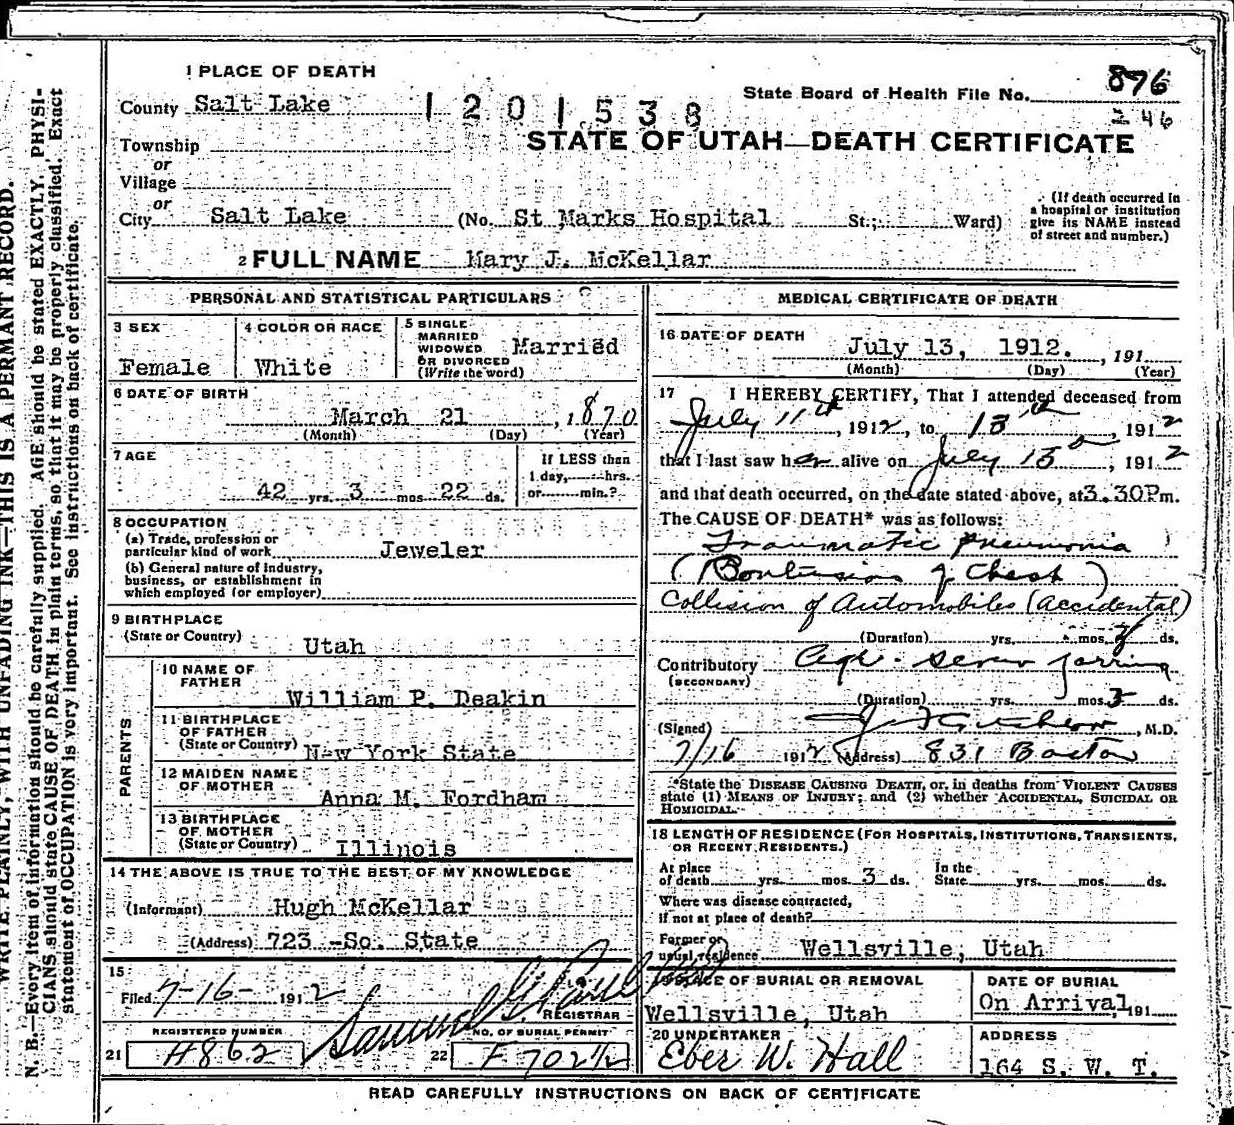 WRITE PLAINLY, WITH UNFADING INK—THIS IS A PERMANT RECORD.
N. B.—Every item of information should be carefully supplied. AGE should be stated EXACTLY. PHYSI-
CIANS should state CAUSE OF DEATH in plain terms, so that it may be properly classified. Exact
statement of OCCUPATION is very important. See instructions on back of certificate.
1 PLACE OF DEATH
County Salt Lake
1201538
State Board of Health File No. 876
246
STATE OF UTAH—DEATH CERTIFICATE
Township
or
Village
or
City Salt Lake (No. St Marks Hospital St.; Ward)
(If death occurred in
a hospital or institution
give its NAME instead
of street and number.)
2 FULL NAME Mary J. McKellar
PERSONAL AND STATISTICAL PARTICULARS
3 SEX
Female
4 COLOR OR RACE
White
5 SINGLE
MARRIED
WIDOWED
OR DIVORCED
(Write the word)
Married
6 DATE OF BIRTH
March 21, 1870
(Month) (Day) (Year)
7 AGE
42 yrs. 3 mos. 22 ds.
If LESS than
1 day, hrs.
or min.?
8 OCCUPATION
(a) Trade, profession or
particular kind of work Jeweler
(b) General nature of Industry,
business, or establishment in
which employed (or employer)
9 BIRTHPLACE
(State or Country)
Utah
PARENTS
10 NAME OF
FATHER
William P. Deakin
11 BIRTHPLACE
OF FATHER
(State or Country) New York State
12 MAIDEN NAME
OF MOTHER
Anna M. Fordham
13 BIRTHPLACE
OF MOTHER
(State or Country) Illinois
14 THE ABOVE IS TRUE TO THE BEST OF MY KNOWLEDGE
(Informant) Hugh McKellar
(Address) 723 -So. State
15
Filed 7-16- 1912 Samuel G.
REGISTRAR
REGISTERED NUMBER
21 H862
NO. OF BURIAL PERMIT
22 F 702 1/2
MEDICAL CERTIFICATE OF DEATH
16 DATE OF DEATH
July 13, 1912. , 191
(Month) (Day) (Year)
17 I HEREBY CERTIFY, That I attended deceased from
July 11th, 1912, to 13th, 1912
that I last saw her alive on July 13th, 1912
and that death occurred, on the date stated above, at 3.30P m.
The CAUSE OF DEATH* was as follows:
Traumatic pneumonia
(Contusion of Chest)
Collision of Automobiles (accidental)
(Duration) yrs. mos. 2 ds.
Contributory
(SECONDARY)
severe jarring
(Duration) yrs. mos. 3 ds.
(Signed) , M.D.
7/16 1912 (Address) 831 Boston
*State the DISEASE CAUSING DEATH, or, in deaths from VIOLENT CAUSES
state (1) MEANS OF INJURY; and (2) whether ACCIDENTAL, SUICIDAL OR
HOMICIDAL.
18 LENGTH OF RESIDENCE (FOR HOSPITALS, INSTITUTIONS, TRANSIENTS,
OR RECENT RESIDENTS.)
At place
of death yrs. mos. 3 ds.
In the
State yrs. mos. ds.
Where was disease contracted,
if not at place of death?
Former or
usual residence Wellsville, Utah
PLACE OF BURIAL OR REMOVAL
Wellsville, Utah
DATE OF BURIAL
On Arrival, 191
20 UNDERTAKER
Eber W. Hall
ADDRESS
164 S. W. T.
READ CAREFULLY INSTRUCTIONS ON BACK OF CERTIFICATE